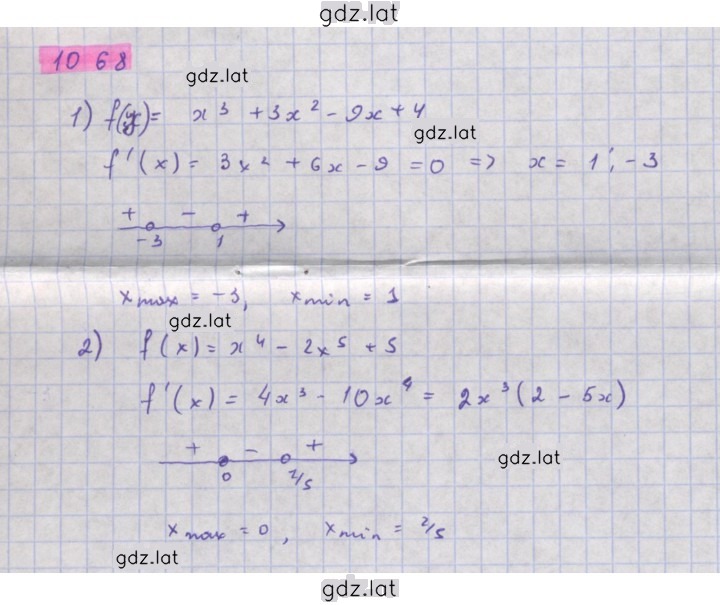 gdz.lat
10 68
gdz.lat
1) f(y)= x³ + 3x² - 9x + 4
gdz.lat
f'(x) = 3x² + 6x - 9 = 0 => x = 1; -3
+ - +
-3 1
x max = -3, x min = 1
gdz.lat
2) f(x) = x⁴ - 2x⁵ + 5
f'(x) = 4x³ - 10x⁴ = 2x³(2 - 5x)
+ - +
gdz.lat
0 2/5
x max = 0, x min = 2/5
gdz.lat
gdz.lat